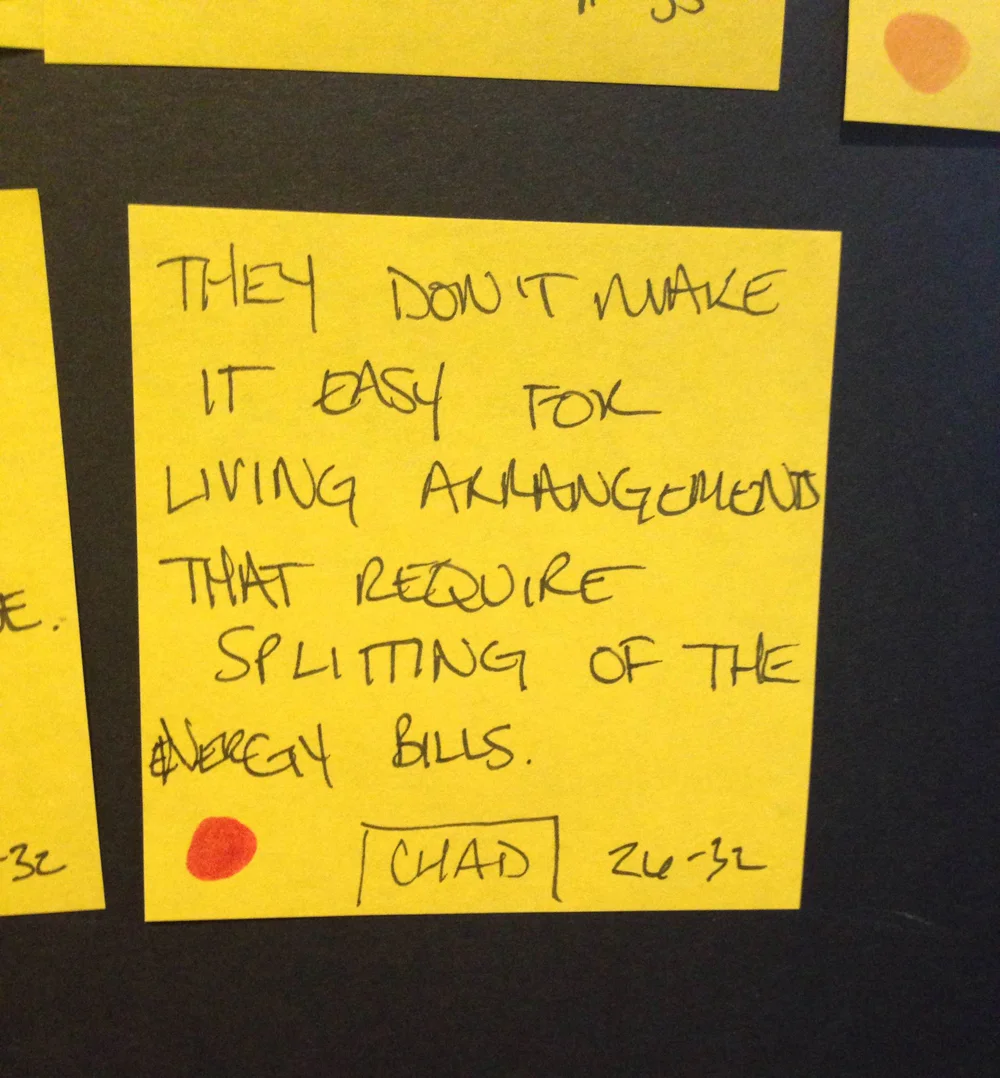 THEY DON'T MAKE
IT EASY FOR
LIVING ARRANGEMENTS
THAT REQUIRE
SPLITTING OF THE
ENERGY BILLS.
CHAD 26-32
E.
-32